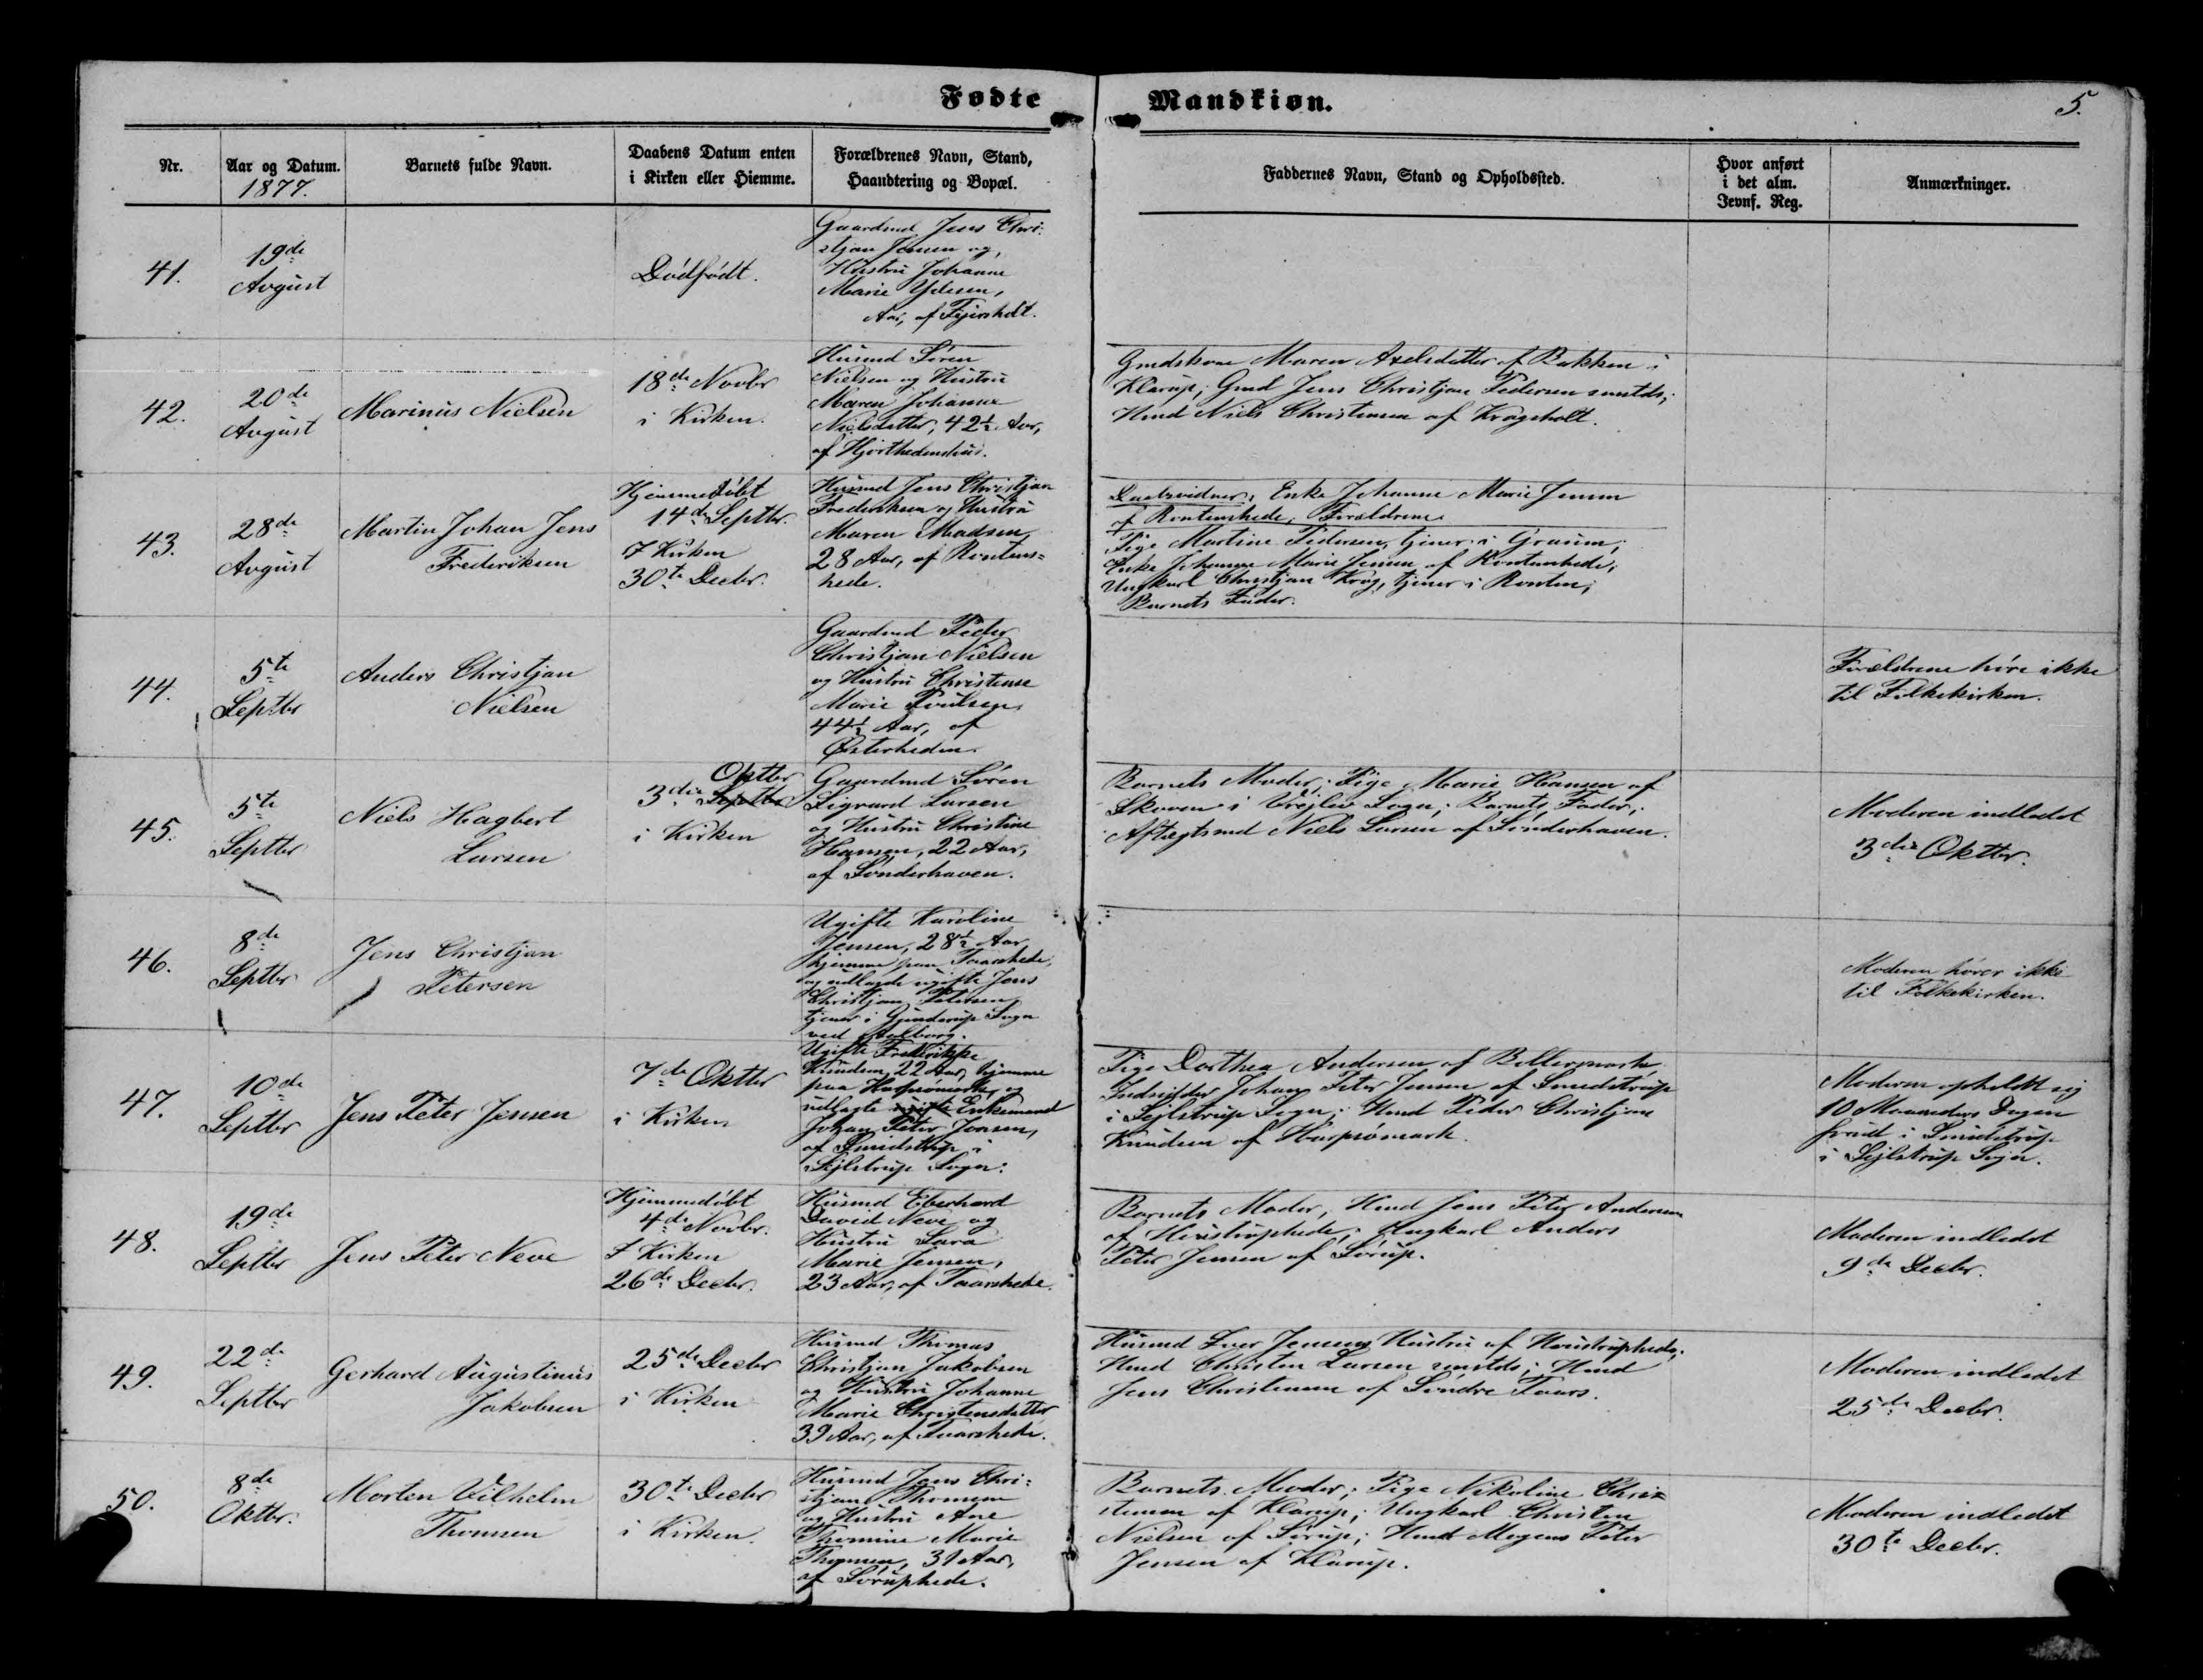 Fødte
Mandkiøn.
5.
Nr.
Aar og Datum.
1877.
Barnets fulde Navn.
Daabens Datum enten
i Kirken eller Hiemme.
Forældrenes Navn, Stand,
Haandtering og Bopæl.
Faddernes Navn, Stand og Opholdssted.
Hvor anført
i det alm.
Jevnf. Reg.
Anmærkninger.
41.
19de
Avgust
Dødfødt.
Gaardmd Jens Chri-
stjan Jensen og
Hustru Johanne
Marie
Aar, af
42.
20de
Avgust
Marinus Nielsen
18de Novbr
i Kirken.
Husmd Søren
Nielsen og Hustru
Maren Johanne
Nielsdatter, 42½ Aar,
af Hjorthedenshus.
Gmdskone Maren Axelsdatter af Bakken i
Klarup; Gmd Jens Christjan Pedersen smstds;
Hmd Niels Christensen af Kragholt.
43.
28de
Avgust
Martin Johan Jens
Frederiksen
Hjemmedøbt
14de Septbr.
I Kirken
30te Decbr.
Husmd Jens Christjan
Frederiksen og Hustru
Maren Madsen,
28 Aar, af Rontens-
hede.
Daabsvidner: Enke Johanne Marie Jensen
af Rontenshede, Forældrene.
Pige Martine Pedersen, tjener i Graum;
Enke Johanne Marie Jensen af Rontenshede;
Ungkarl Christjan Krog, tjener i Ronten;
Barnets Fader.
44.
5te
Septbr
Anders Christjan
Nielsen
Gaardmd Peder
Christjan Nielsen
og Hustru Christense
Marie Poulsen,
44½ Aar, af
Østerheden.
Forældrene høre ikke
til Folkekirken.
45.
5te
Septbr
Niels Hagbert
Larsen
Oktbr
3die Septbr
i Kirken
Gaardmd Søren
Sigvard Larsen
og Hustru Christine
Hansen, 22 Aar,
af Sønderhaven.
Barnets Moder; Pige Marie Hansen af
Skoven i Vrejlev Sogn; Barnets Fader;
Aftægtsmd Niels Larsen af Sønderhaven.
Moderen indledet
3die Oktbr.
46.
8de
Septbr
Jens Christjan
Petersen
Ugifte Karoline
Jensen, 28½ Aar,
hjemme paa Taarshede,
og udlagde ugifte Jens
Christjan Petersen,
tjener i Gunderup Sogn
ved Aalborg.
Moderen hører ikke
til Folkekirken.
47.
10de
Septbr
Jens Peter Jensen
7de Oktbr
i Kirken
Ugifte Frederikke
Knudsen, 22 Aar, hjemme
paa og
udlagte ugifte Enkemand
Johan Peter Jensen,
af Smidstrup i
Sejlstrup Sogn.
Pige Dorthea Andersen af Bollermark,
Indsidder Johan Peter Jensen af Smidstrup
i Sejlstrup Sogn; Hmd Peder Christjan
Knudsen af
Moderen opholdt sig
10 Maaneders Dagen
forud i Smidstrup
i Sejlstrup Sogn.
48.
19de
Septbr
Jens Peter Neve
Hjemmedøbt
4de Novbr.
I Kirken
26de Decbr.
Husmd Eberhard
David Neve og
Hustru Sara
Marie Jensen,
23 Aar, af Taarshede.
Barnets Moder, Hmd Jens Peter Andersen
af Havstruphede; Ungkarl Anders
Peter Jensen af Sørup.
Moderen indledet
9de Decbr.
49.
22de
Septbr
Gerhard Augustinus
Jakobsen
25de Decbr
i Kirken
Husmd Thomas
Christjan Jakobsen
og Hustru Johanne
Marie Christensdatter
39 Aar, af Taarshede.
Husmd Iver Jensens Hustru af Havstruphede;
Hmd Christen Larsen smstds; Hmd
Jens Christensen af Søndre Taars.
Moderen indledet
25de Decbr.
50.
8de
Oktbr.
Morten Vilhelm
Thomsen
30te Decbr
i Kirken.
Husmd Jens Chri-
stjan Thomsen
og Hustru Ane
Thomine Marie
Thomsen, 31 Aar,
af Søruphede.
Barnets Moder; Pige Nikoline Chri-
stensen af Klarup; Ungkarl Christen
Nielsen af Sørup; Hmd Mogens Peter
Jensen af Klarup.
Moderen indledet
30te Decbr.